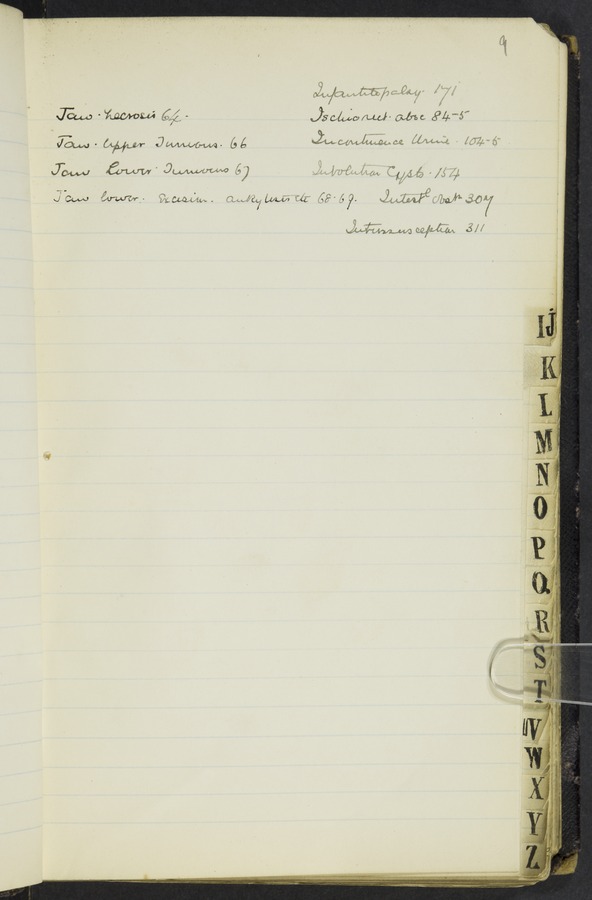 9
Infantile palsy. 171
Jaw. Necrosis 64.
Jaw. Upper Tumours. 66
Jaw Lower Tumours 67
Jaw lower. Excision. ankylosis etc 68-69.
Ischiorect. absc 84-5
Incontinence Urine. 104-5
Involution Cysts. 154
Intestl obstn 307
Intussusception 311
IJ
K
L
M
N
O
P
Q.
R
S
T
UV
W
X
Y
Z